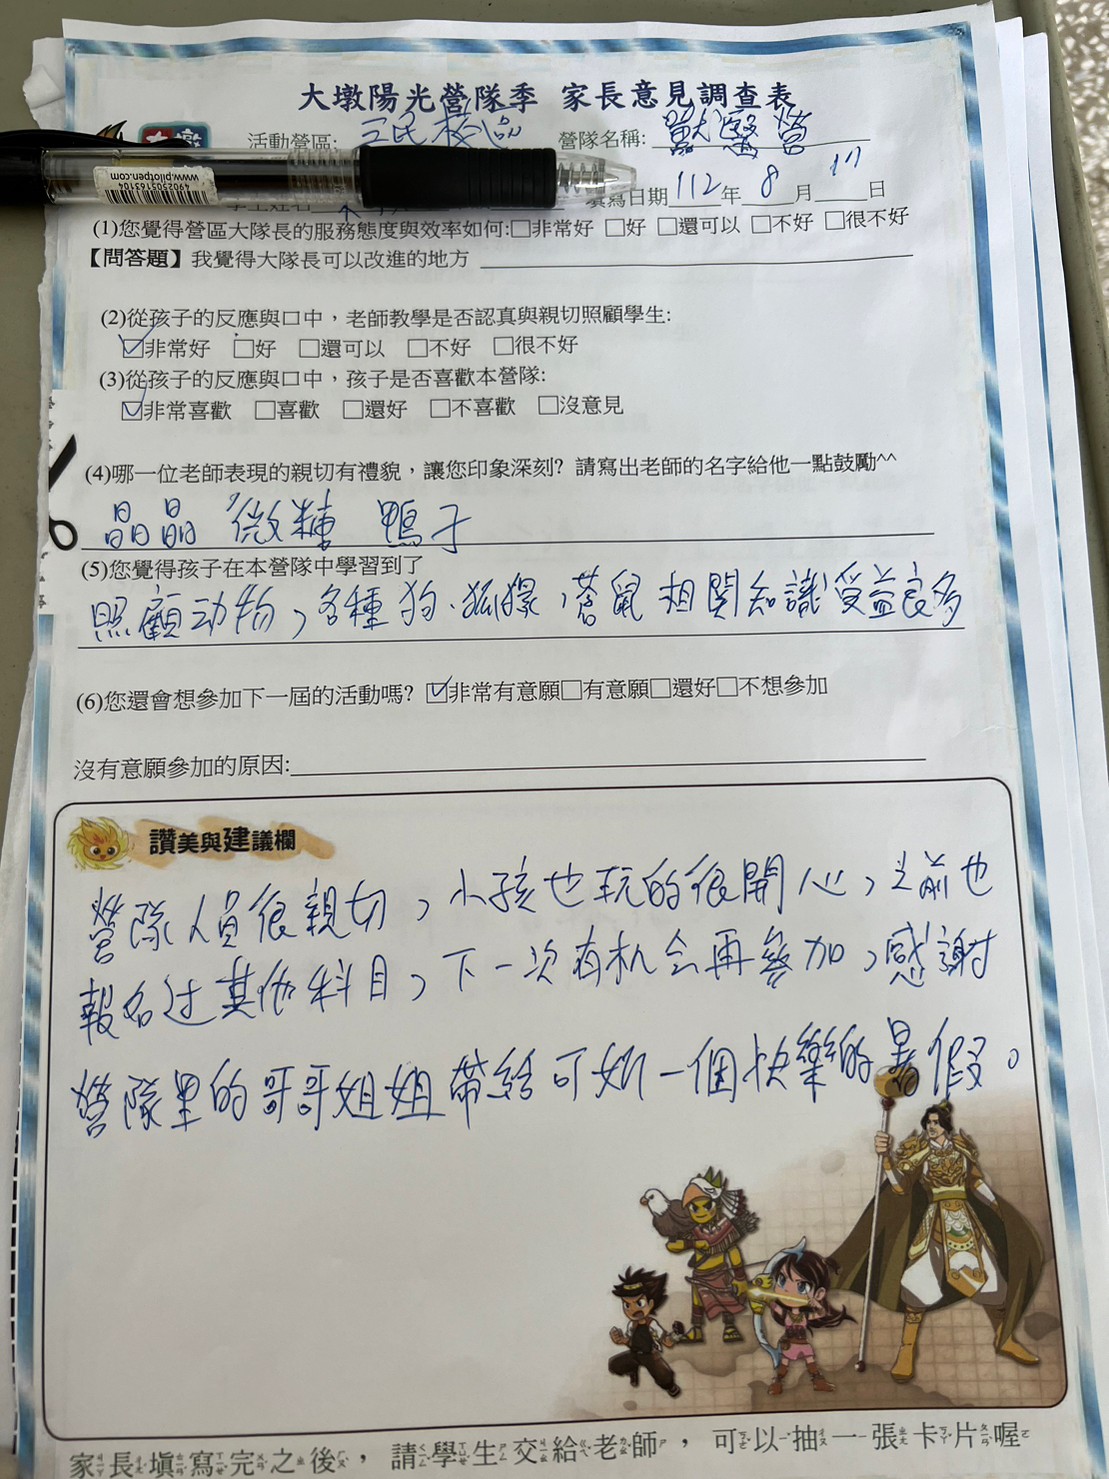 大墩陽光營隊季 家長意見調查表
活動營區: 三民校區 營隊名稱: 獸醫營
填寫日期112年 8 月 17 日
(1)您覺得營區大隊長的服務態度與效率如何:□非常好 □好 □還可以 □不好 □很不好
【問答題】我覺得大隊長可以改進的地方
(2)從孩子的反應與口中，老師教學是否認真與親切照顧學生:
☑非常好 □好 □還可以 □不好 □很不好
(3)從孩子的反應與口中，孩子是否喜歡本營隊:
☑非常喜歡 □喜歡 □還好 □不喜歡 □沒意見
(4)哪一位老師表現的親切有禮貌，讓您印象深刻? 請寫出老師的名字給他一點鼓勵^^
晶晶 微糖 鴨子
(5)您覺得孩子在本營隊中學習到了
照顧动物，各種狗、狐獴，蒼鼠 相関知識受益良多
(6)您還會想參加下一屆的活動嗎? ☑非常有意願□有意願□還好□不想參加
沒有意願參加的原因:
讚美與建議欄
營隊人員很親切，小孩也玩的很開心，之前也
報名过其他科目，下一次有机会再參加，感謝
營隊里的哥哥姐姐帶給可如一個快樂的暑假。
家長填寫完之後，請學生交給老師，可以抽一張卡片喔
www.pilotpen.com
4902505163104